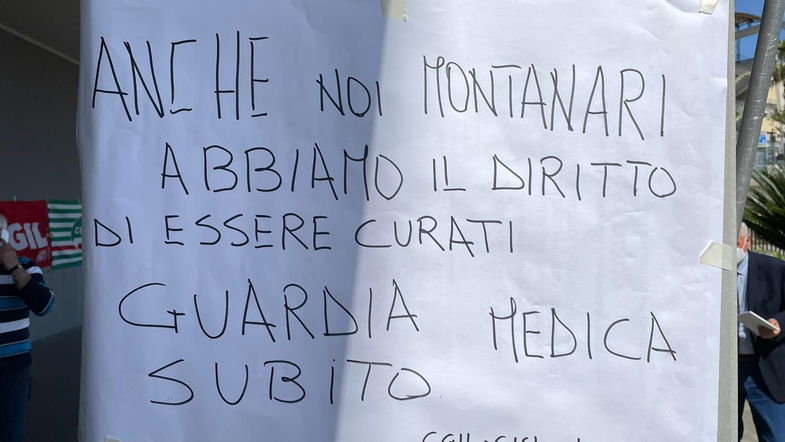 ANCHE NOI MONTANARI
ABBIAMO IL DIRITTO
DI ESSERE CURATI
GUARDIA MEDICA
SUBITO
GIL